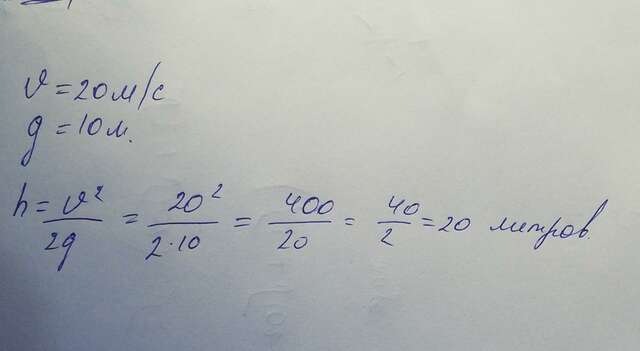 υ = 20 м/с
g = 10 м.
h = υ²/2g = 20²/2·10 = 400/20 = 40/2 = 20 метров.